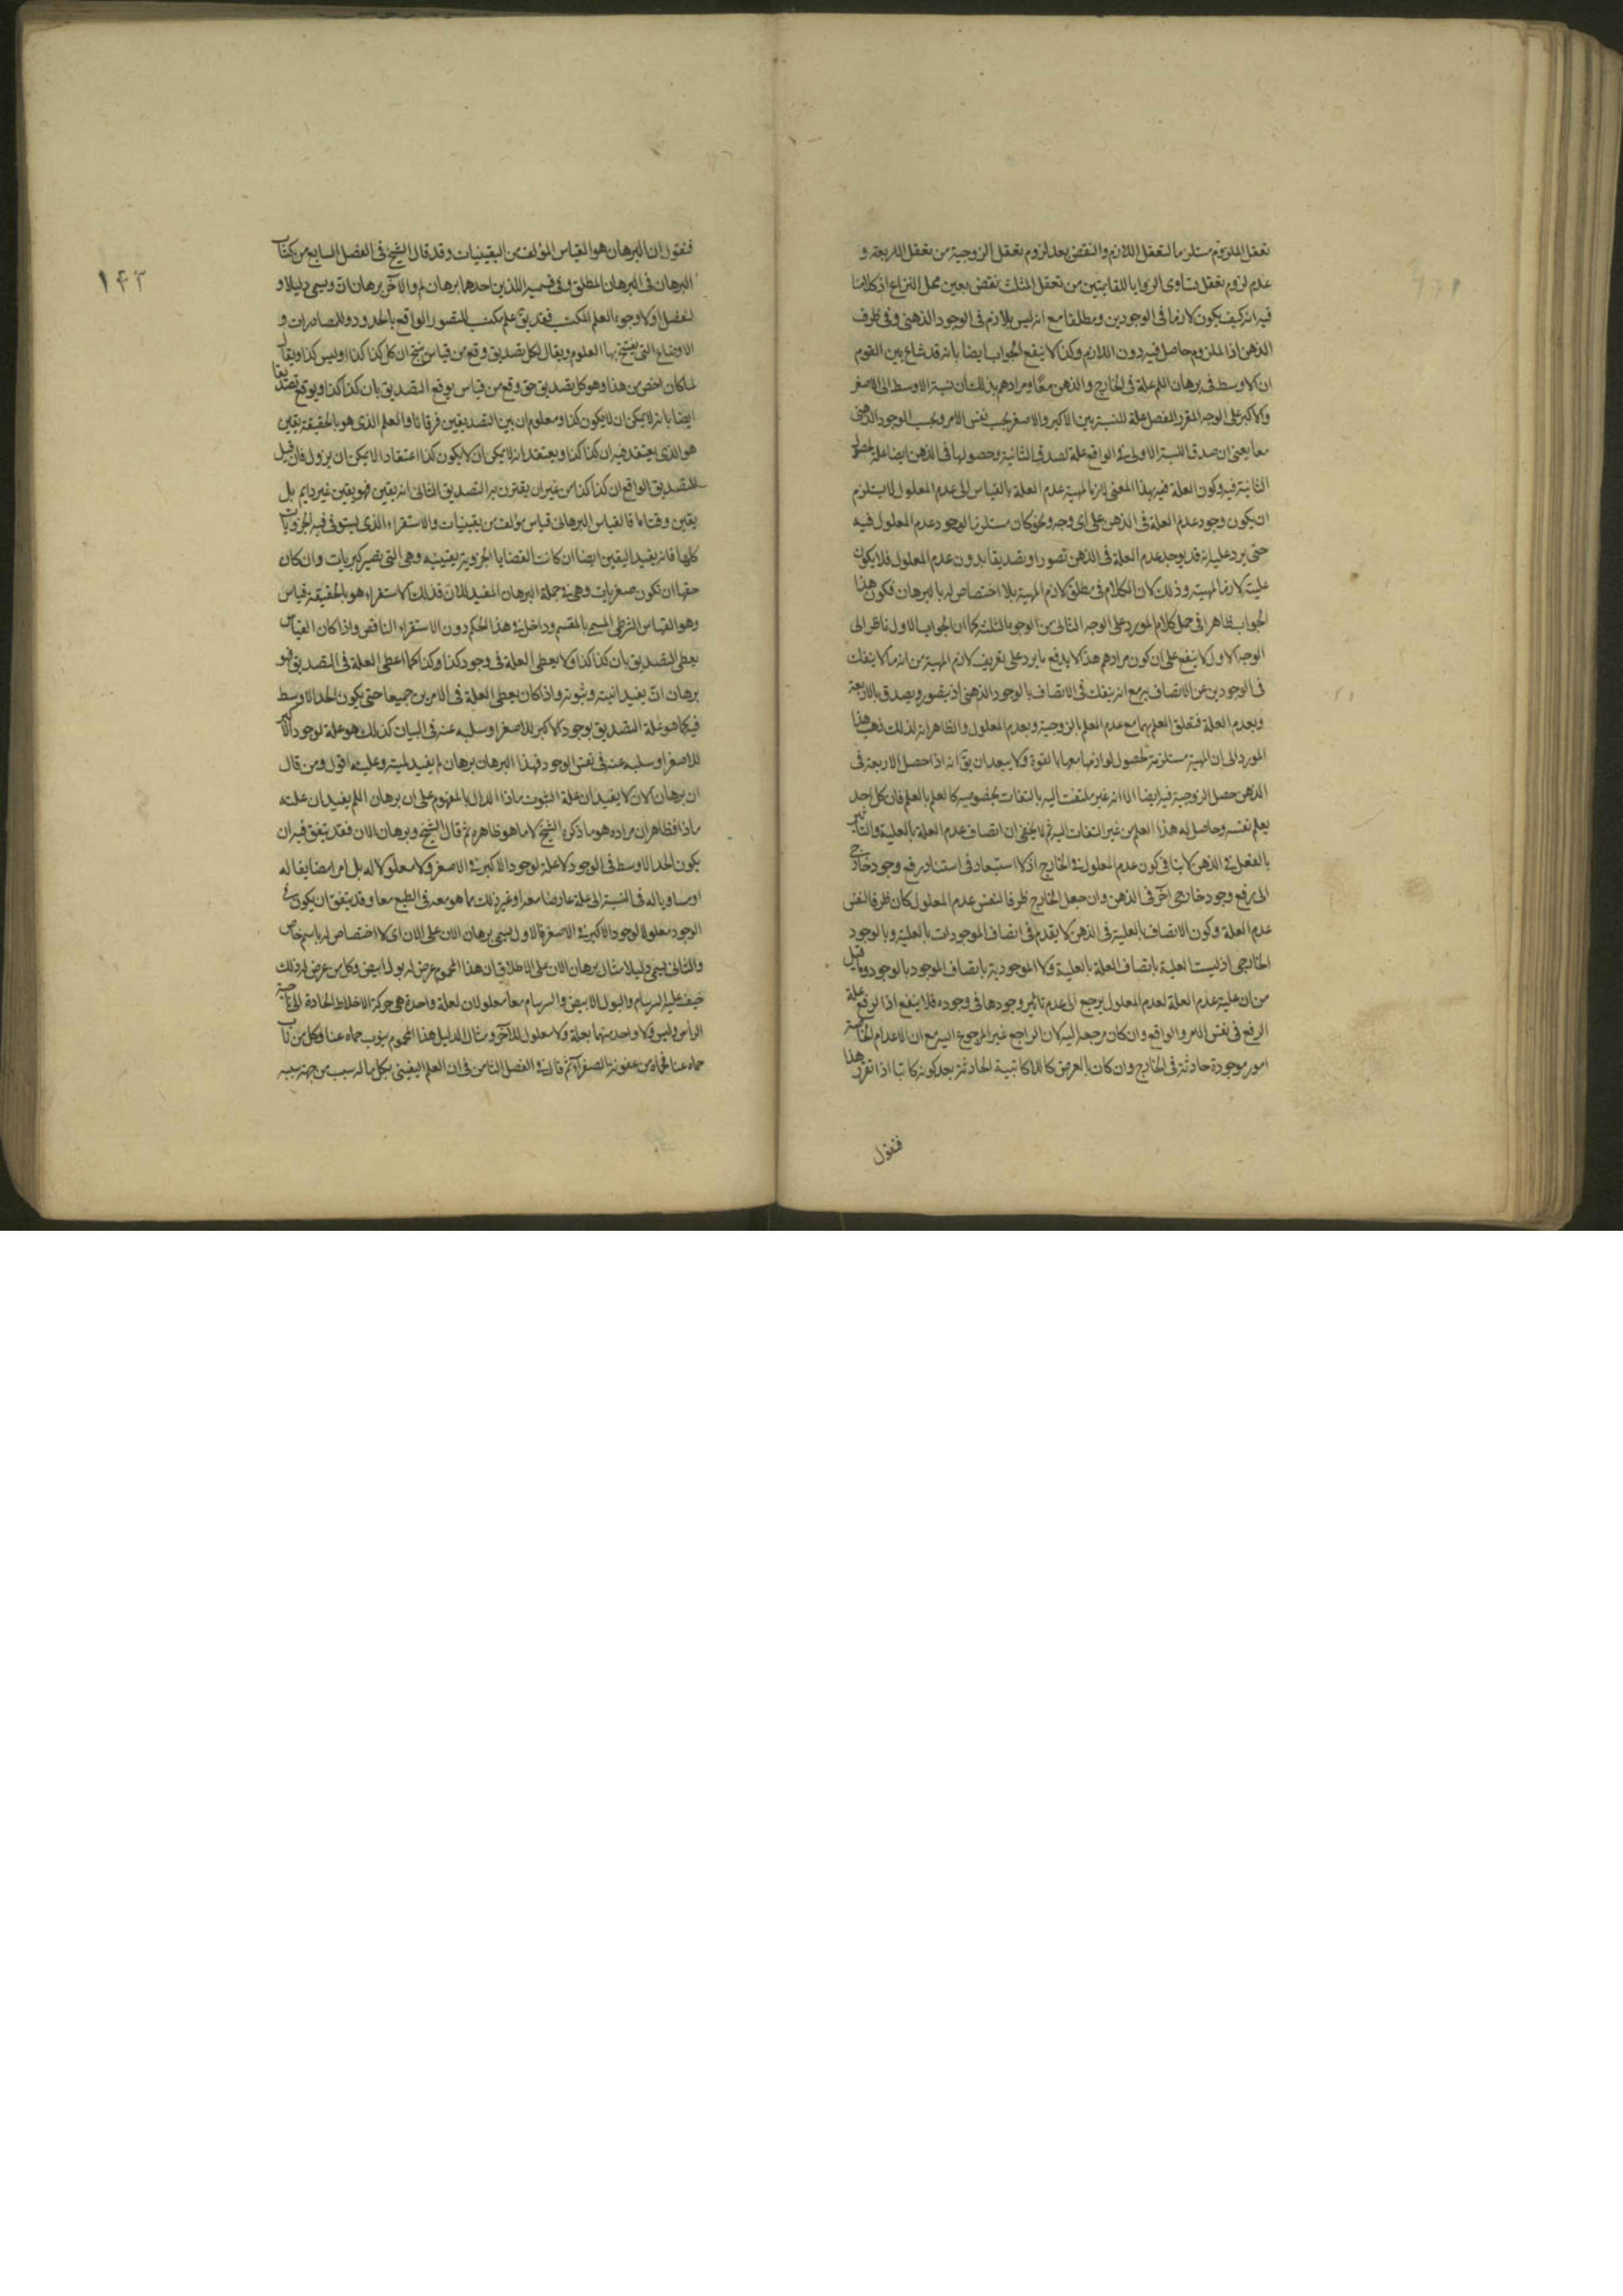 تعقل الملزوم مستلزما لتعقل اللازم والنقض بعد لزوم تعقل الزوجية من تعقل الاربعة و
عدم لزوم تعقل تساوى الزوايا للقايمتين من تعقل المثلث نقض بعين محل النزاع اذ كلامنا
فيه انه كيف يكون لازما فى الوجودين ومطلقا مع انه ليس بلازم فى الوجود الذهنى وفى ظرف
الذهن اذ الملزوم حاصل فيه دون اللازم وكذا لا ينفع الجواب ايضا بانه قد شاع بين القوم
ان الاوسط فى برهان اللم علة فى الخارج والذهن معا ومرادهم بذلك ان نسبة الاوسط الى الاصغر
والاكبر على الوجه المقرر المفصل علة للنسبة بين الاكبر والاصغر بحسب نفس الامر وبحسب الوجود الذهنى
معا يعنى ان صدق النسبة الاولى فى الواقع علة لصدق الثانية وحصولها فى الذهن ايضا علة لحصول
الثانية فيه وكون العلة فيه بهذا المعنى لازما لمهية عدم العلة بالقياس الى عدم المعلول لا يستلزم
ان يكون وجود عدم العلة فى الذهن على اى وجه ونحو كان مستلزما لوجود عدم المعلول فيه
حتى يرد عليه انه قد يوجد عدم العلة فى الذهن تصورا وتصديقا بدون عدم المعلول فلا يكون
عليته لازما لمهيته وذلك لان الكلام فى مطلق لازم المهية بلا اختصاص له بالبرهان فكون هذا
الجواب ظاهرا فى حمل كلام المورد على الوجه الثانى من الوجوه الثلثة كما ان الجواب الاول ناظر الى
الوجه الاول لا ينفع على ان كون مرادهم هذا لا يدفع ما يرد على تعريف لازم المهية من انه ما لا ينفك
فى الوجودين عن الاتصاف به مع انه ينفك فى الاتصاف بالوجود الذهنى اذ يتصور ويصدق بالاربعة
وبعدم العلة فتعلق العلم بهما مع عدم العلم بالزوجية وبعدم المعلول والظاهر انه لذلك ذهب هذا
المورد الى ان المهية مستلزمة لحصول لوازمها معها بالقوة ولا يبعد ان يق انه اذا حصل الاربعة فى
الذهن حصل الزوجية فيه ايضا الا انه غير ملتفت اليه بالتفات بخصوصه كالعلم بالعلم فان كل احد
يعلم نفسه وحاصل له هذا العلم من غير التفات اليه ثم لا يخفى ان اتصاف عدم العلة بالعلية والتاثير
بالفعل فى الذهن لا ينافى كون عدم المعلول فى الخارج اذ لا استبعاد فى استناد رفع وجود خارجى
الى رفع وجود خارجى آخر فى الذهن وان جعل الخارج ظرفا لنفس عدم المعلول كان ظرفا لنفس
عدم العلة وكون الاتصاف بالعلية فى الذهن لا يقدم فى اتصاف الموجودات بالعلية وبالوجود
الخارجى اذ ليست العلية باتصاف العلة بالعلية ولا الموجودية باتصاف الموجود بالوجود وما قيل
من ان علية عدم العلة لعدم المعلول يرجع الى عدم تاثير وجودها فى وجوده فلا ينفع اذ الرفع علة
الرفع فى نفس الامر والواقع وان كان مرجعه اليه لان الراجع غير المرجوع اليه مع ان الاعدام الخاصة
امور موجودة حادثة فى الخارج وان كان بالعرض كاللاكاتبية الحادثة بعد كونه كاتبا اذا تقرر هذا
فنقول
١۴۲
فنقول ان البرهان هو القياس المؤلف من اليقينيات وقد قال الشيخ فى الفصل السابع من كتاب
البرهان فى البرهان المطلق وفى قسميه اللذين احدهما برهان لم والآخر برهان ان ويسمى دليلا و
لنفصل اولا وجوه العلم المكتسب فقد يق علم مكتسب للتصور الواقع بالحدود وللمصادرات و
الاوضاع التى يفتتح بها العلوم ويقال لكل تصديق وقع من قياس ينتج ان كل كذا كذا او ليس كذا ويقال
لما كان اخص من هذا وهو كل تصديق حق وقع من قياس يوقع التصديق بان كذا كذا ويوقع تصديقا
ايضا بانه لا يمكن ان لا يكون كذا ومعلوم ان بين التصديقين فرقانا والعلم الذى هو بالحقيقة يقين
هو الذى يعتقد فيه ان كذا كذا ويعتقد انه لا يمكن ان لا يكون كذا اعتقادا لا يمكن ان يزول فان قيل
للتصديق الواقع ان كذا كذا من غير ان يقترن به التصديق الثانى انه يقين فهو يقين غير دايم بل
يقين وقتا ما فالقياس البرهانى قياس مؤلف من يقينيات والاستقراء الذى يستوفى فيه الجزويات
كلها فانه يفيد اليقين ايضا ان كانت القضايا الجزوية يقينيه وهى التى يصير كبريات وان كان
حقها ان تكون صغريات وهى فى جملة البرهان المفيد للان فذلك لاستقراء هو بالحقيقة قياس
وهو القياس الشرطى المسمى بالمقسم وداخل فى هذا الحكم دون الاستقراء الناقص واذا كان القياس
يعطى التصديق بان كذا كذا ولا يعطى العلة فى وجود كذا وكذا كما اعطى العلة فى التصديق فهو
برهان ان يفيد انيته وثبوته واذا كان يعطى العلة فى الامرين جميعا حتى يكون الحد الاوسط
فيه كما هو علة التصديق بوجود الاكبر للاصغر او سلبه عنه فى البيان كذلك هو علة لوجود الاكبر
للاصغر او سلبه عنه فى نفس الوجود فهذا البرهان برهان لم يفيد لميته وعليته اقول ومن قال
ان برهان الان لا يفيد ان علة الثبوت ماذا الدال بالمفهوم على ان برهان اللم يفيد ان علته
ماذا فظاهر ان مراده هو ما ذكره الشيخ لا ما هو ظاهره ثم قال الشيخ وبرهان الان فقد يتفق فيه ان
يكون الحد الاوسط فى الوجود لا علة لوجود الاكبر فى الاصغر ولا معلولا له بل امر مضايفا له
او مساويا له فى النسبة الى علة عارضا معه او غير ذلك مما هو معه فى الطبع معا وقد يتفق ان يكون فى
الوجود معلولا لوجود الاكبر فى الاصغر فالاول يسمى برهان الان على الان اى لا اختصاص له باسم خاص
والثانى يسمى دليلا مثال برهان الان على الاطلاق ان هذا المحموم عرض له بول ابيض وكل من عرض له ذلك
خيف عليه السرسام والبول الابيض والسرسام معا معلولان لعلة واحدة هى حركة الاخلاط الحادة الى ناحية
الراس وليس ولا واحد منهما بعلة ولا معلول للآخر ومثال الدليل هذا المحموم ينوب حماه عنا وكل من ناب
حماه عنا فحماه من عفونة الصفراء ثم قال فى الفصل الثامن فى ان العلم اليقينى بكل ما له سبب من جهة سببه